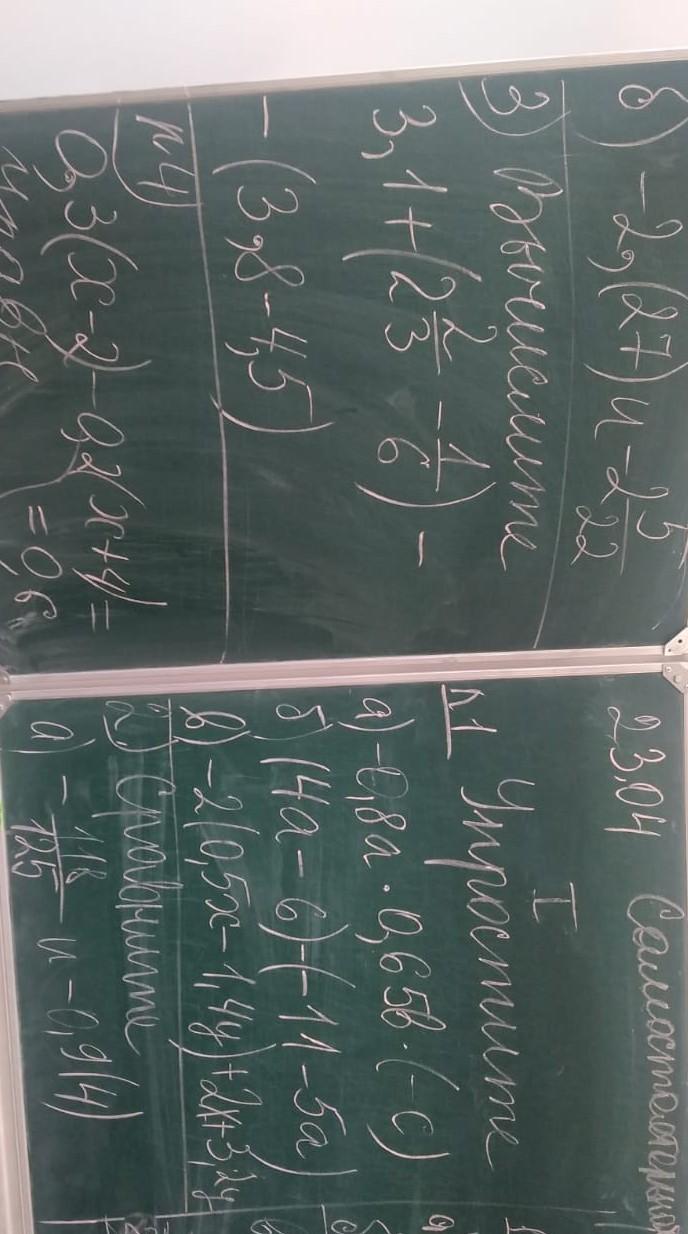 23.04 Самостоятельная
I
№1 Упростите
а) -0,8a · 0,65b · (-c)
б) (4a - 6) - (-11 - 5a)
в) -2(0,5x - 1,4y) + 2x + 3,2y
2) Сравните
а) -118/125 и -0,9(4)
б) -2,(27) и -2 5/22
3) Вычислите
3,1 + (2 2/3 - 1/6) -
- (3,8 - 4,5)
№4)
0,3(x - 2) - 0,2(x + 4) =
= 0,6